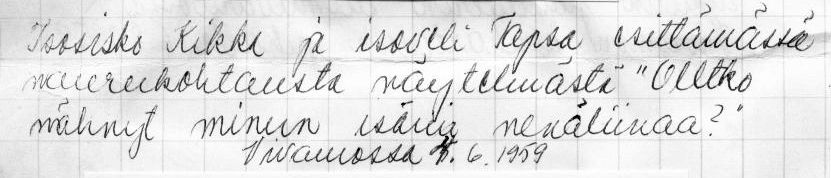 Isosisko Kikka ja isoveli Tapsa esittämässä
naurukohtausta näytelmästä "Oletko
nähnyt minun isäni nenäliinaa?"
Vivamossa 6. 1959